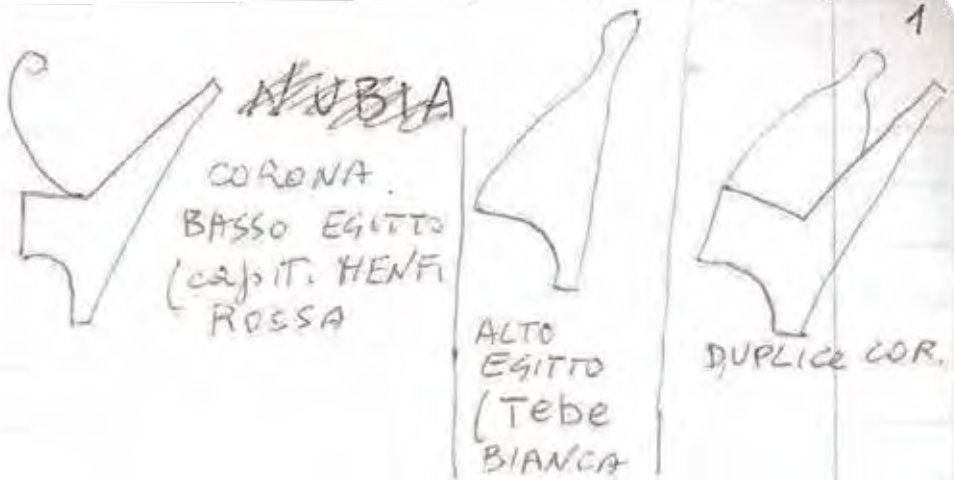 1
NUBIA
CORONA.
BASSO EGITTO
(capit. MENFI
ROSSA
ALTO
EGITTO
(Tebe
BIANCA
DUPLICE COR.